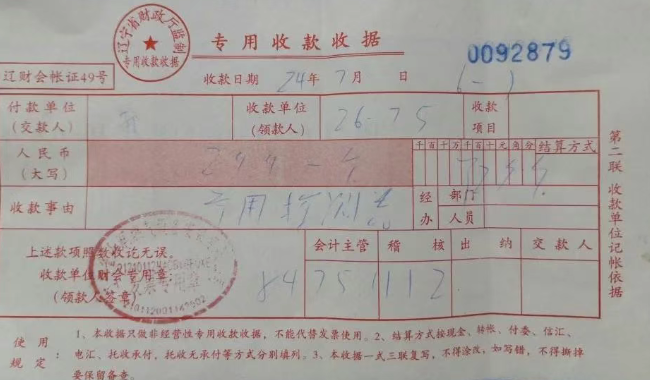 辽宁省财政厅监制
专用收款收据
专用收款收据
0092879
辽财会帐证49号
收款日期 24年7月 日 (一)
付款单位
(交款人)
收款单位
(领款人)
26.75
收款
项目
人民币
(大写)
千百十万千百十元角分
结算方式
收款事由
专用
经办
部门
人员
上述款项照数收讫无误
收款单位财会专用章:
(领款人签章)
会计主管 稽核 出纳 交款人
84751112
第二联 收款单位记帐依据
使用规定:
1、本收据只做非经营性专用收款收据,不能代替发票使用。2、结算方式按现金、转帐、付委、信汇、
电汇、托收承付、托收无承付等方式分别填列。3、本收据一式三联复写,不得涂改,如写错,不得撕掉
要保留备查。